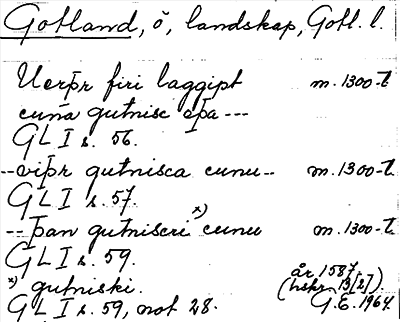 Gotland, ö, landskap, Gotl. l.
Uerþr firi laggipt m. 1300-t.
cuna gutnisc eþa ---
GL I s. 56.
--viþr gutnisca cunu-- m. 1300-t.
GL I s. 57.
-- þan gutniscri x) cunu m. 1300-t.
GL I s. 59.
x) gutniski. år 1587,
GL I s. 59, not 28. (hskr. B[2]).
G.E. 1964.